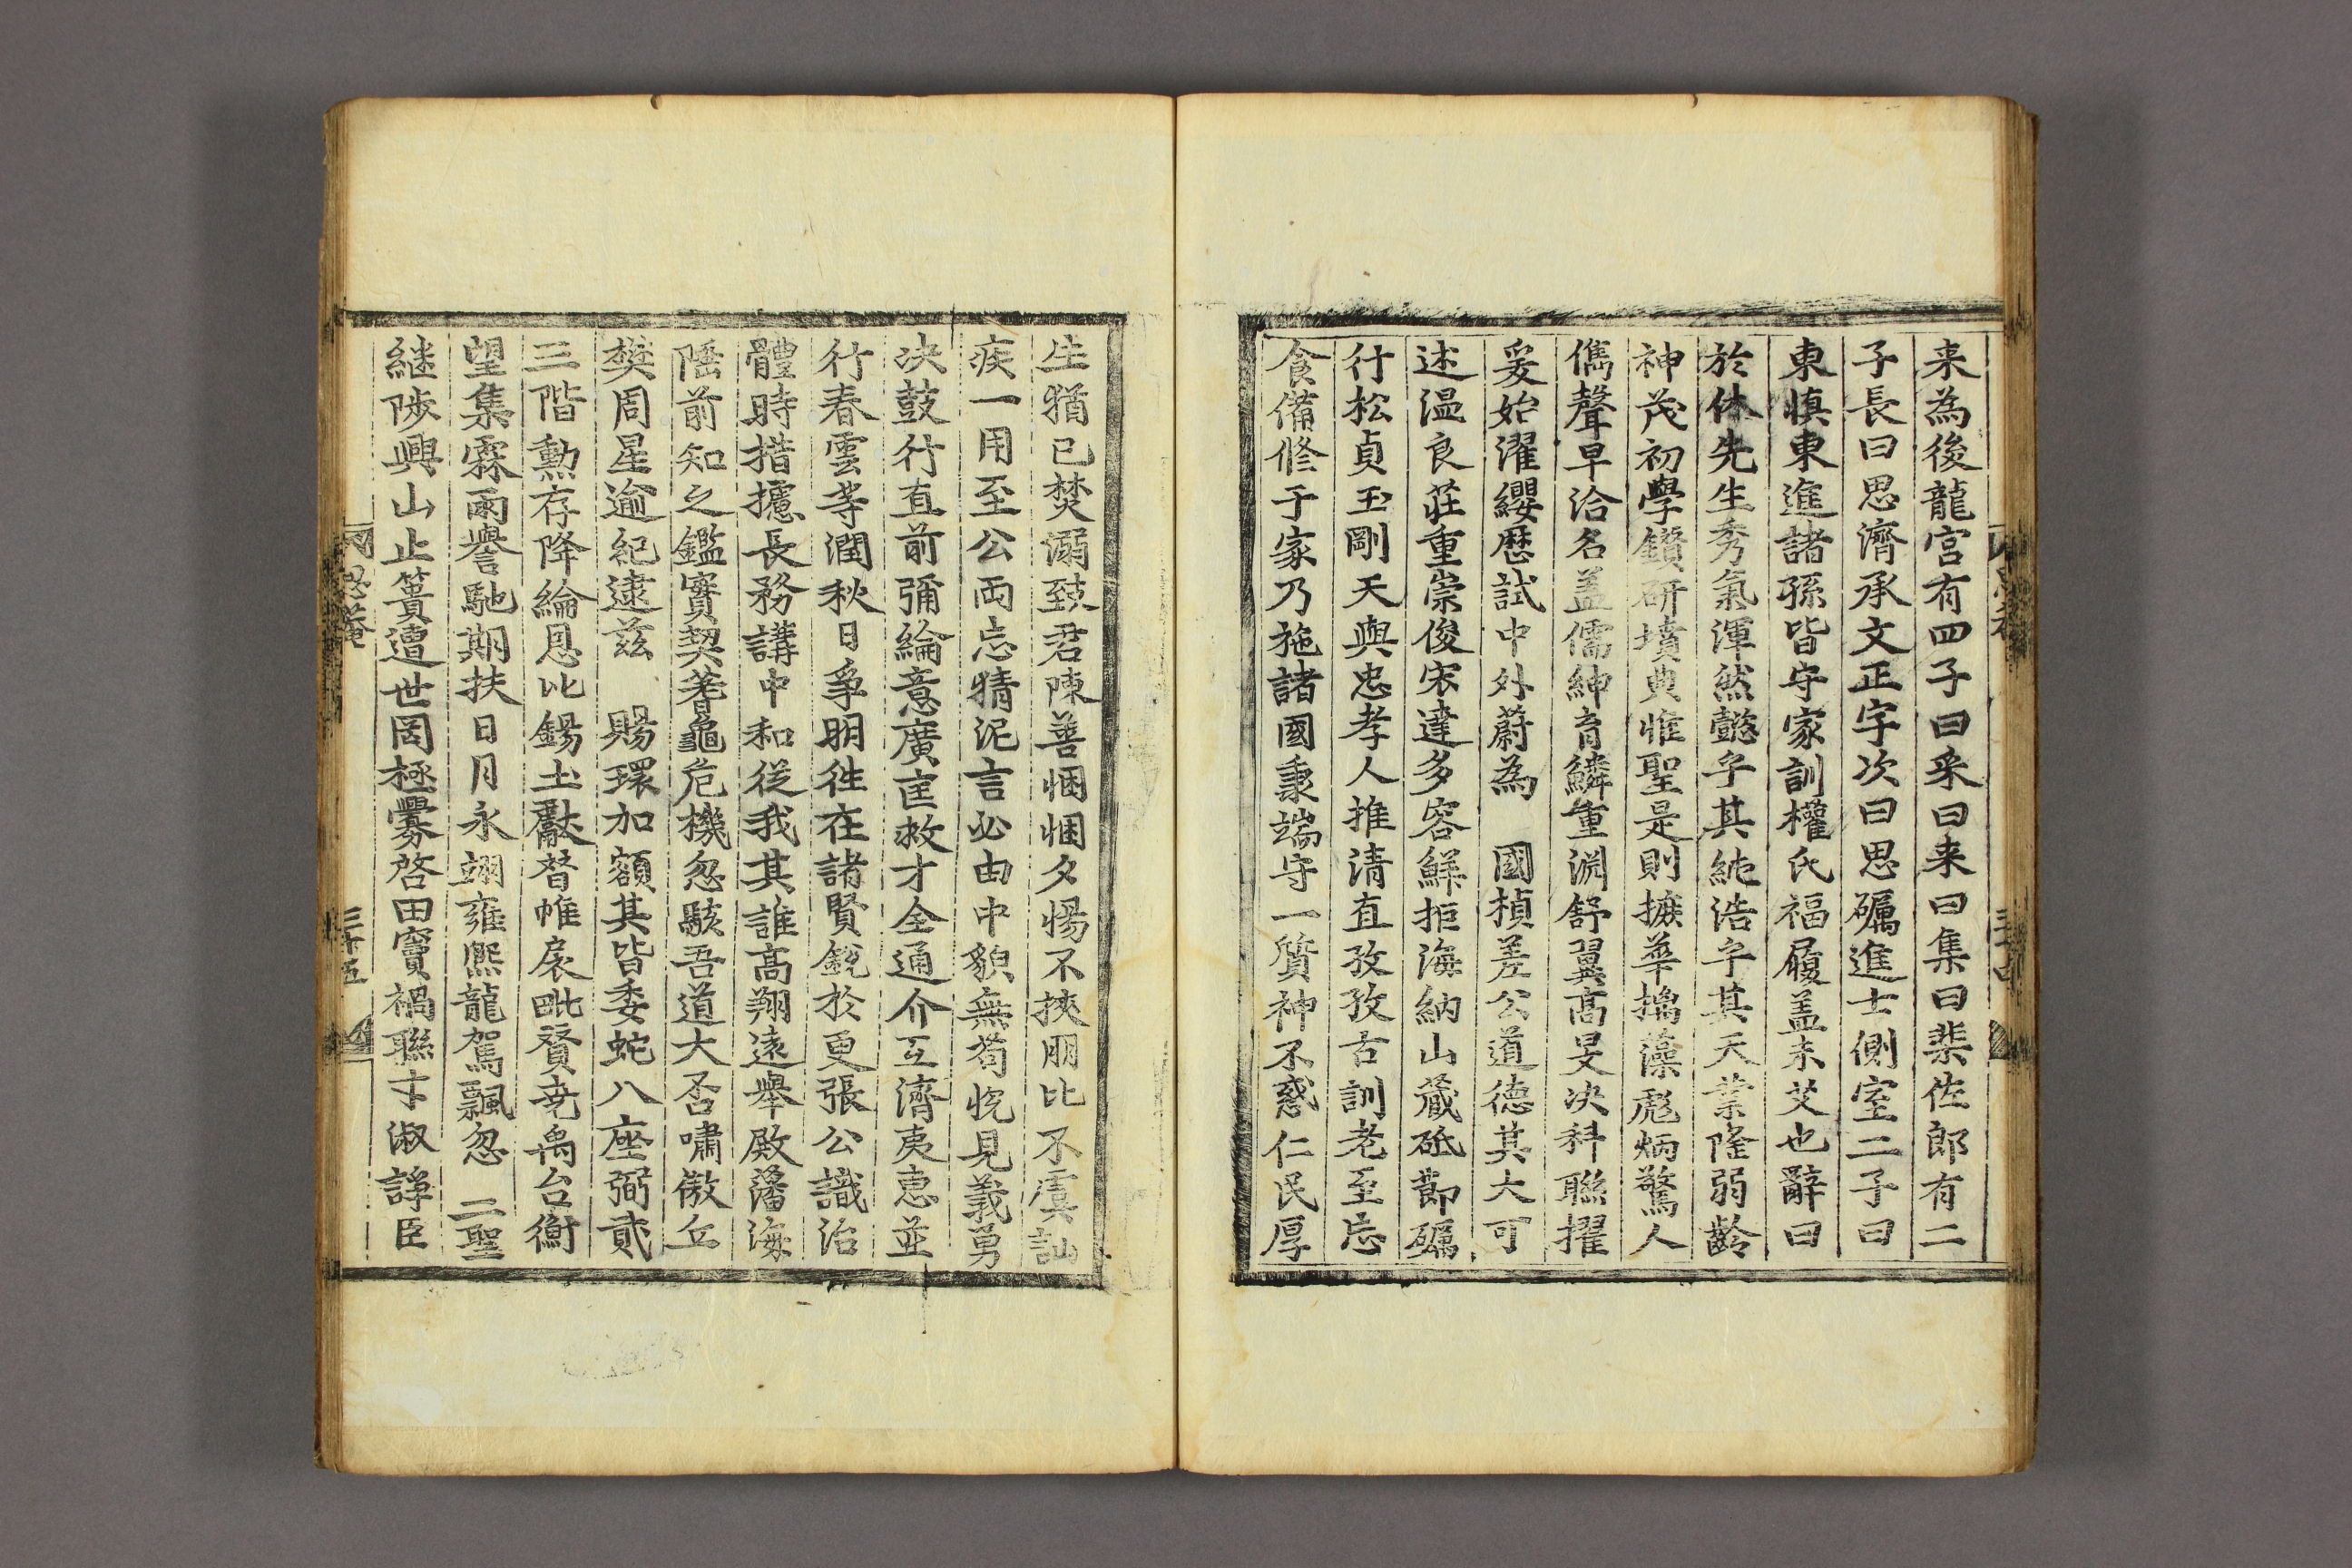 来為後龍宮有四子曰采曰来曰集曰棐佐郎有二
子長曰思濟承文正字次曰思礪進士側室二子曰
東慎東進諸孫皆守家訓權氏福履盖未艾也辭曰
於休先生秀氣渾然懿乎其純浩乎其天業隆弱齡
神茂初學鑽研墳典惟聖是則摭華摛藻彪炳驚人
儁聲早洽名盖儒紳育鱗重淵舒翼高旻决科聯擢
爰始濯纓歴試中外蔚為　國楨差公道德其大可
述温良莊重崇俊宋達多容鮮拒海納山藏砥節礪
行松貞玉剛天與忠孝人推清直孜孜古訓老至忘
食備修于家乃施諸國秉端守一質神不惑仁民厚
生猶已焚溺致君陳善悃悃夕惕不挾朋比不虞訕
疾一用至公両忘猜泥言必由中貌無苟恱見義勇
决鼓行直前彌綸意廣匡救才全通介互濟夷惠並
行春雲等潤秋日爭明徃在諸賢銳於更張公識治
體時措攄長務講中和從我其誰高翔遠舉殿藩海
陲前知之鑑實契蓍龜危機忽駭吾道大否嘯傲丘
樊周星逾紀逮茲　賜環加額其皆委蛇八座弼貳
三階勳存降綸恩比錫土黻督帷扆毗賛堯禹台衡
望集霖雨譽馳期扶日月永翊雍熙龍駕飄忽　二聖
継陟興山止簣遭世罔極釁啓田竇禍聯寸淑諍臣
三十五